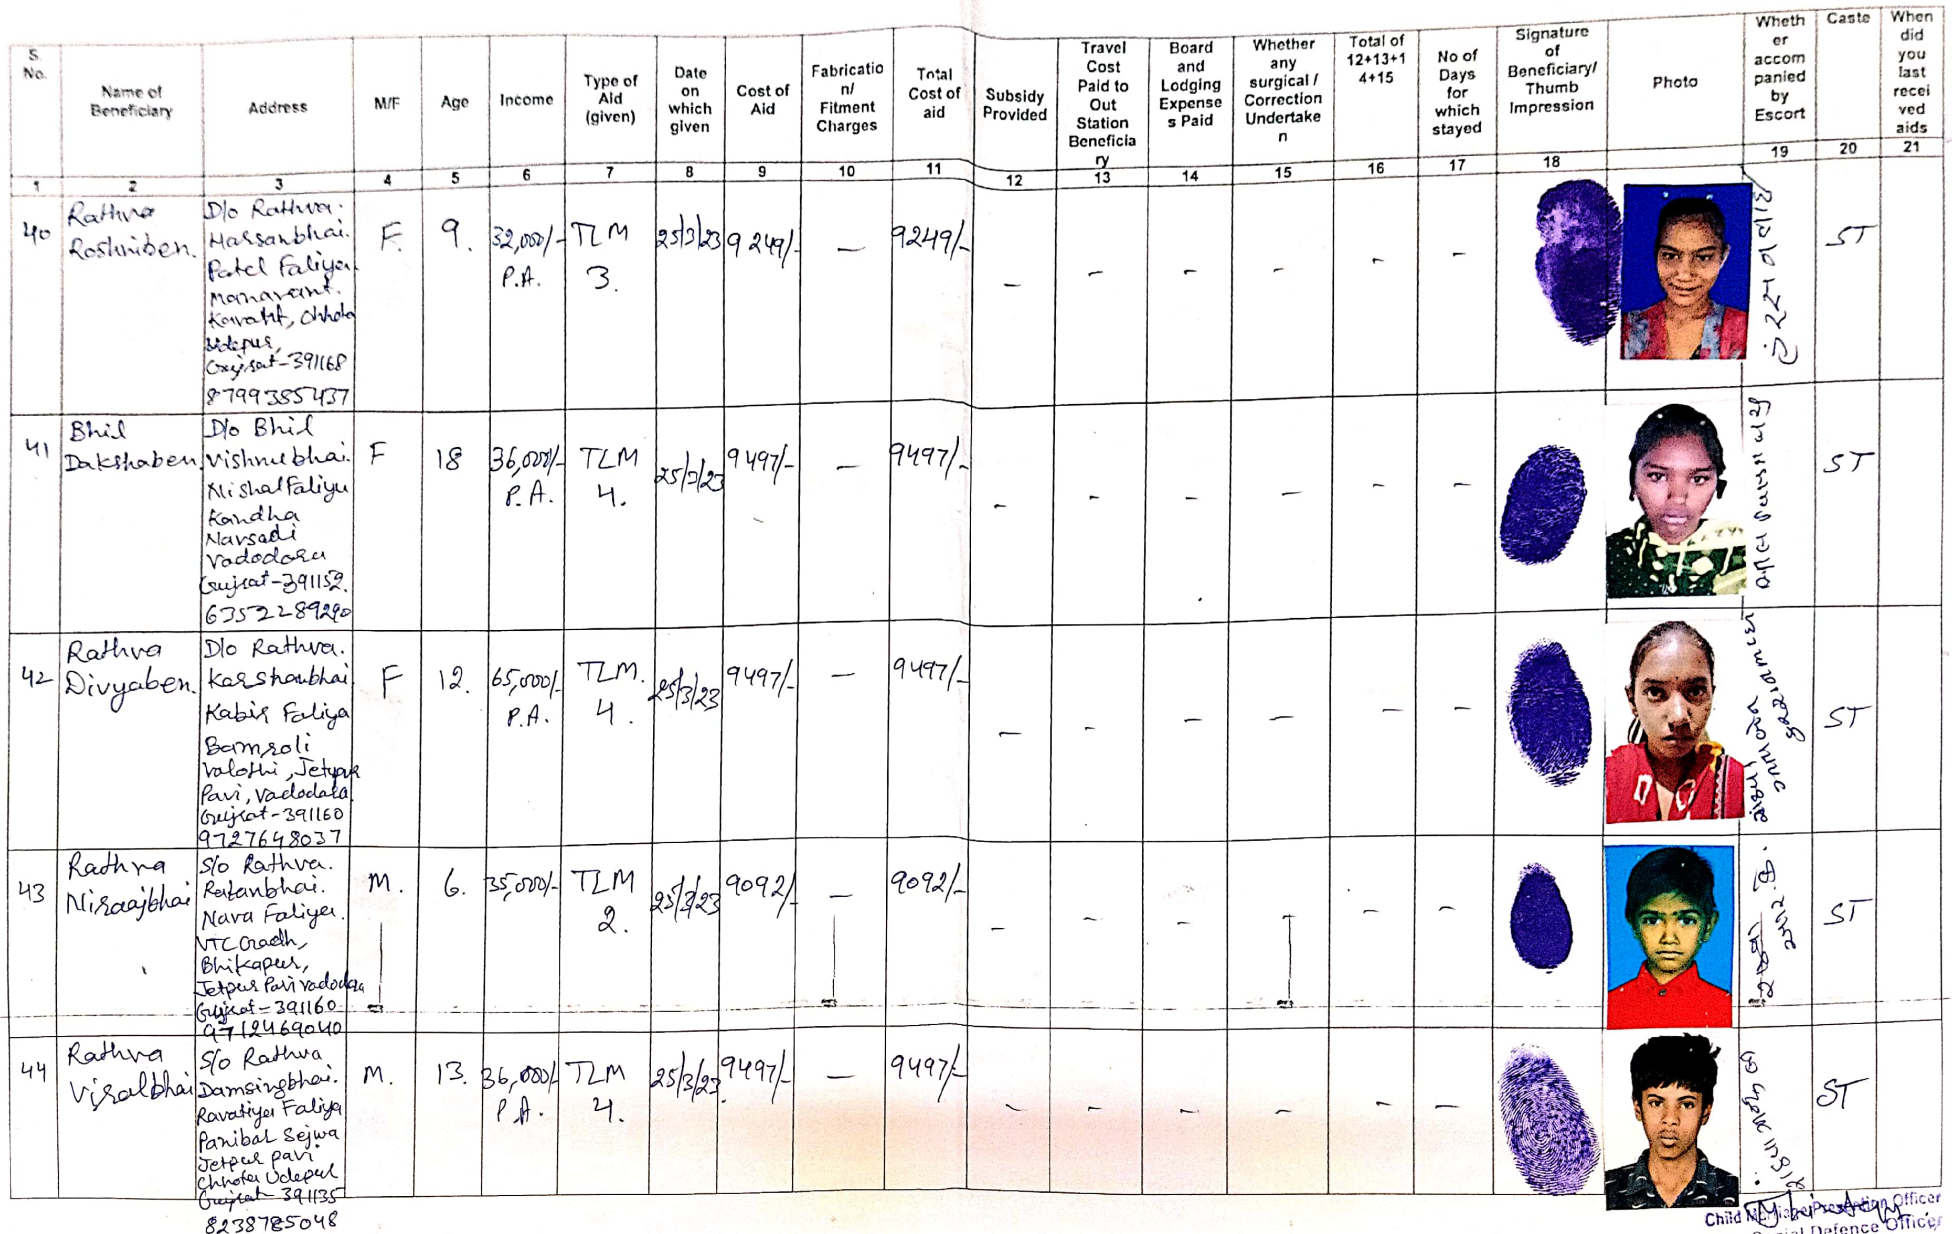 S. No.
Name of Beneficiary
Address
M/F
Age
Income
Type of Aid (given)
Date on which given
Cost of Aid
Fabricatio n/ Fitment Charges
Total Cost of aid
Subsidy Provided
Travel Cost Paid to Out Station Beneficia ry
Board and Lodging Expense s Paid
Whether any surgical / Correction Undertake n
Total of 12+13+1 4+15
No of Days for which stayed
Signature of Beneficiary/ Thumb Impression
Photo
Wheth er accom panied by Escort
Caste
When did you last recei ved aids
1 2 3 4 5 6 7 8 9 10 11 12 13 14 15 16 17 18 19 20 21
40
Rathva
Roshniben.
D/o Rathva.
Harsanbhai.
Patel Faliya
Chhota
Udepur,
Gujrat-391168
8799385437
F.
9.
32,000/-
P.A.
TLM
3.
25/3/23
9249/-
—
9249/-
- - - - - -
ST
41
Bhil
Dakshaben
D/o Bhil
Vishnubhai.
Nishal Faliyu
Kandha
Narsadi
Vadodara
Gujrat-391152.
6352289290
F
18
36,000/-
P.A.
TLM
4.
25/3/23
9497/-
—
9497/-
- - - - - -
ST
42
Rathva
Divyaben.
D/o Rathva.
Karshanbhai
Kabir Faliya
Bamroli
Valothi, Jetpur
Pavi, Vadodara
Gujrat-391160
9727648037
F
12.
65,000/-
P.A.
TLM.
4.
25/3/23
9497/-
—
9497/-
- - - - - -
ST
43
Rathva
Nisaajbhai
S/o Rathva.
Ratanbhai.
Nava Faliya.
VTC Gradh,
Bhikapur,
Jetpur Pavi Vadodara
Gujrat-391160
9712469040
M.
6.
35,000/-
TLM
2.
25/3/23
9092/-
—
9092/-
- - - - - -
ST
44
Rathva
Visalbhai
S/o Rathva
Damsingbhai.
Ravatiya Faliya
Panibar Sejwa
Jetpur pavi
Chhota Udepur
Gujrat 391135
8238785048
M.
13.
36,000/-
P.A.
TLM
4.
25/3/23
9497/-
—
9497/-
- - - - - -
ST
Child Marriage Prevention Officer
Social Defence Officer